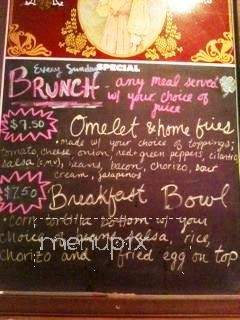 Every Sunday SPECIAL
BRUNCH - any meal served
w/ your choice of
juice
$7.50 Omelet & home fries
• made w/ your choice of toppings;
tomato, cheese, onion, red & green peppers, cilantro,
salsa (s,m,v), beans, bacon, chorizo, sour
cream, jalapeños
$7.50 Breakfast Bowl
• Corn tortilla bottom w/ your
choice of beans, salsa, rice,
chorizo and fried egg on top
menupix